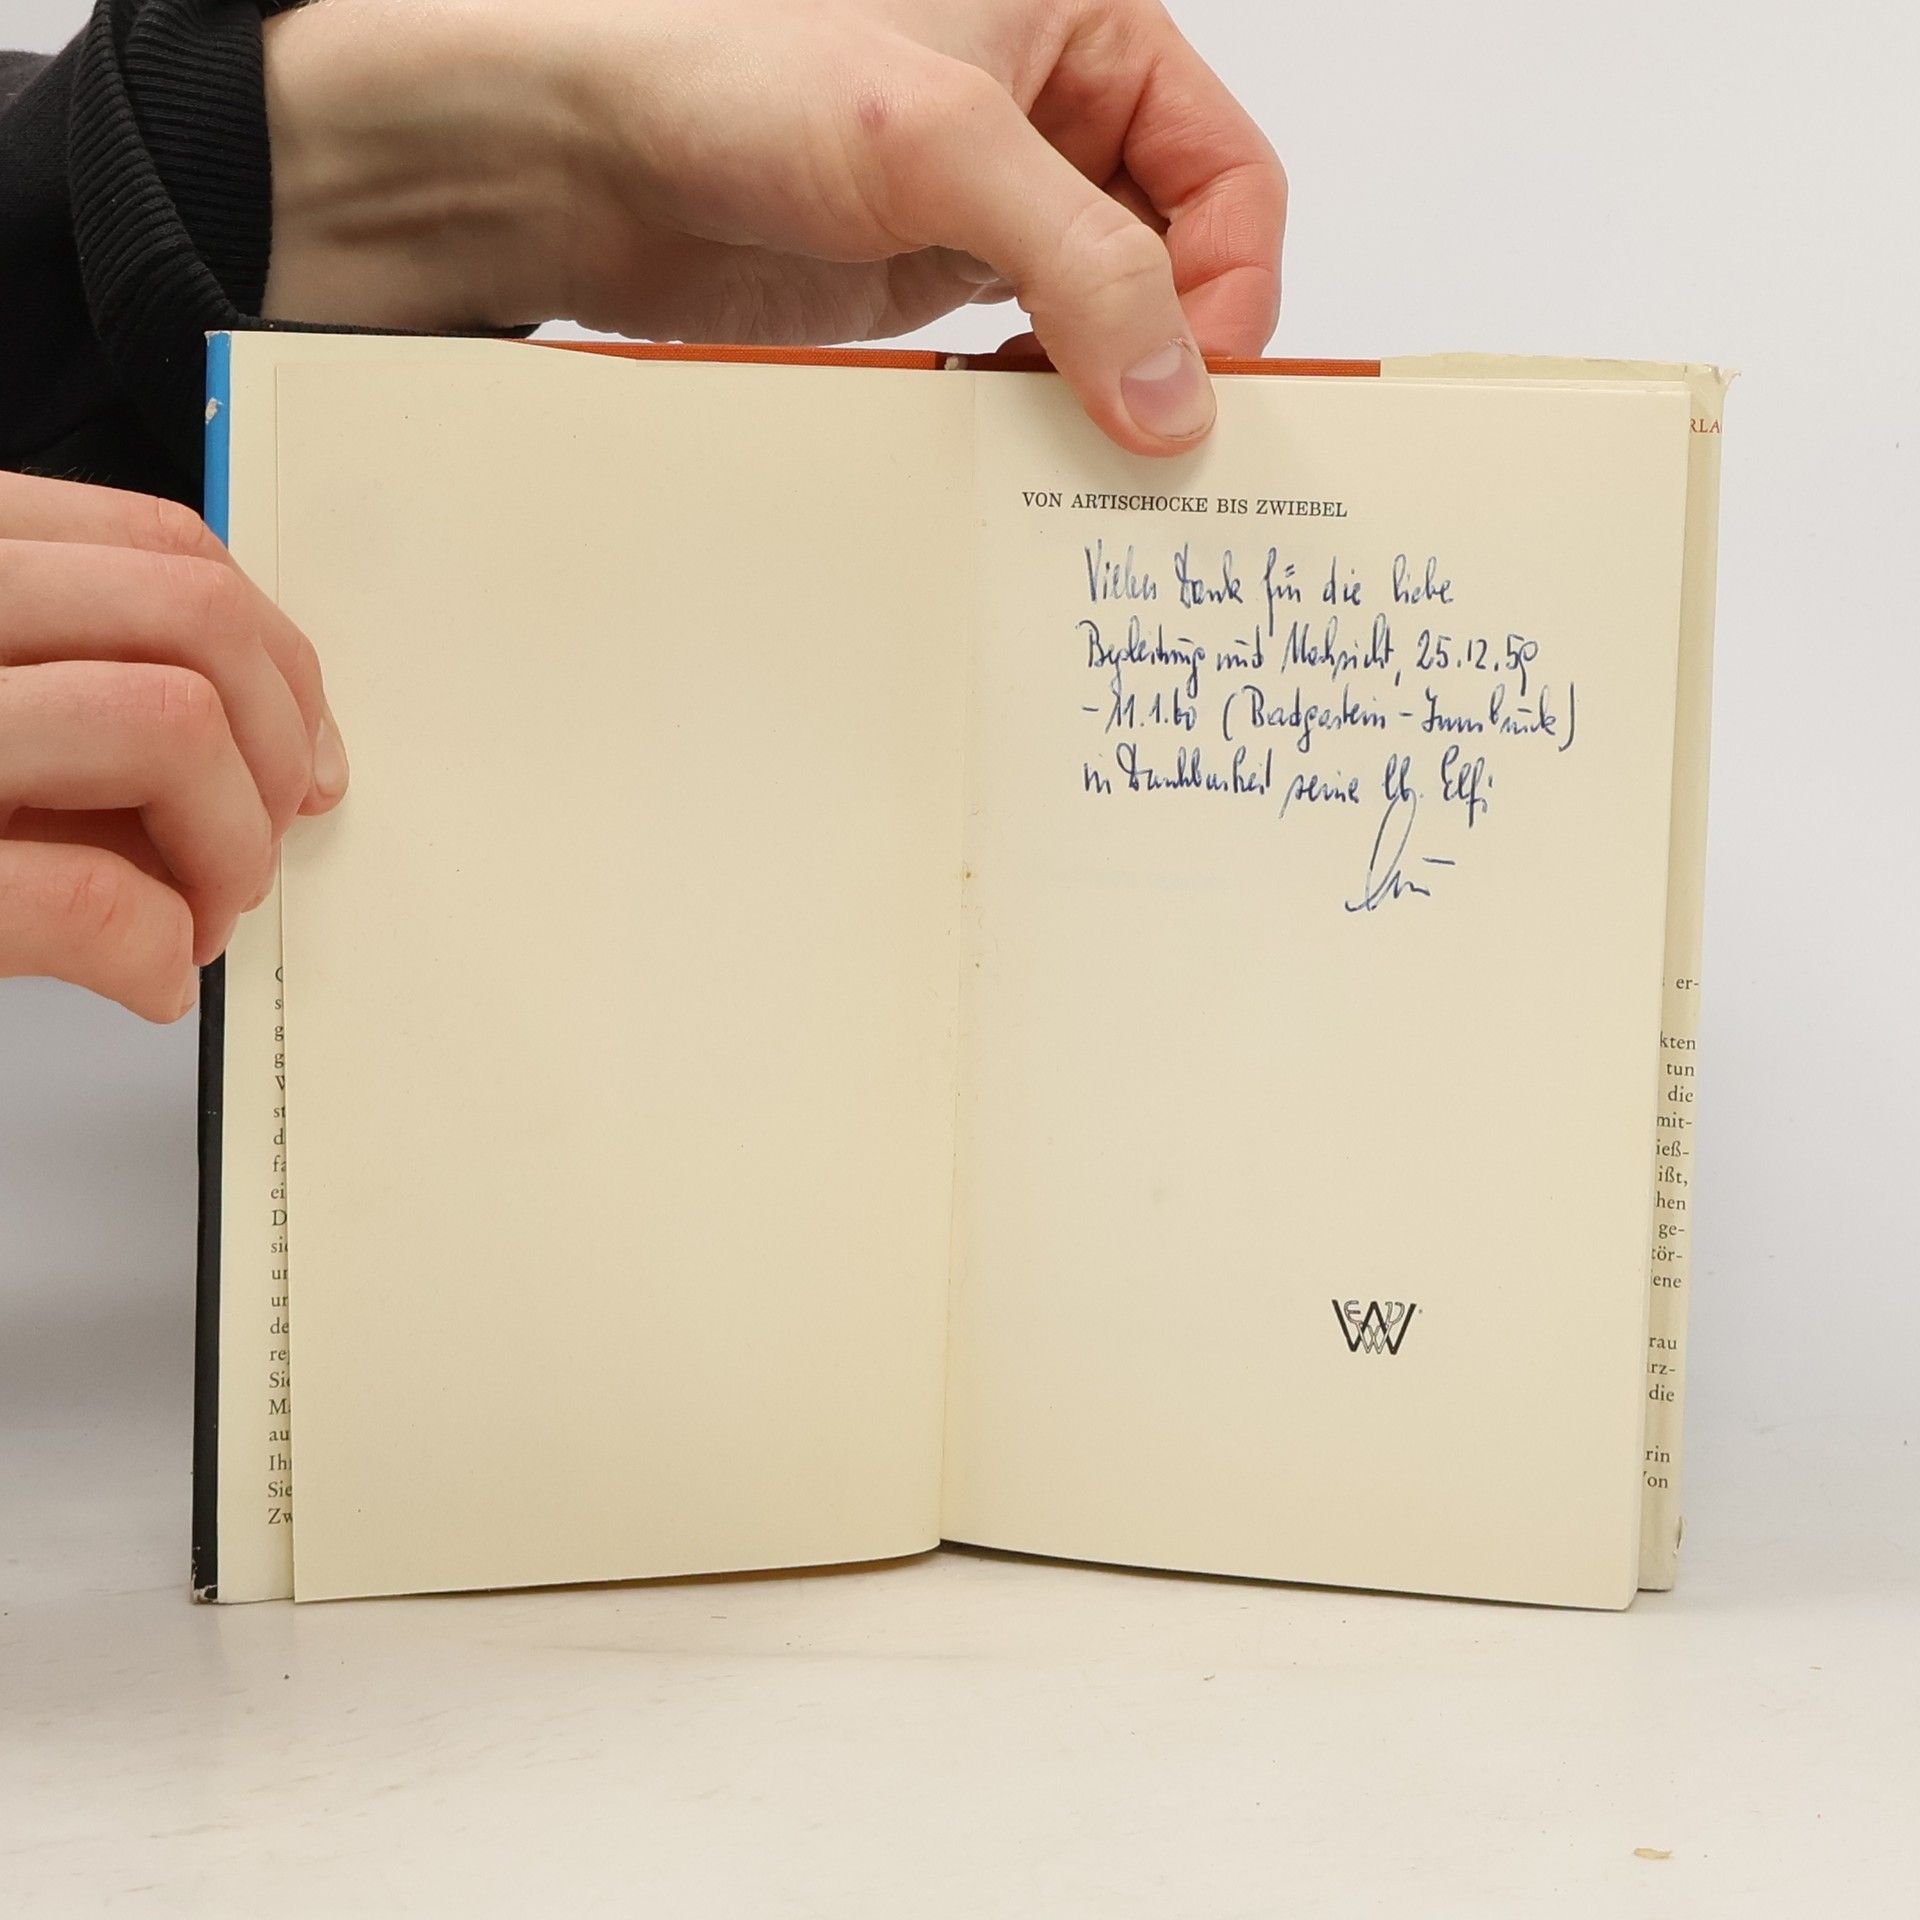 RLA
VON ARTISCHOCKE BIS ZWIEBEL
Vielen Dank für die liebe
Begleitung und Nachsicht, 25.12.59
- 11.1.60 (Badgastein - Innsbruck)
in Dankbarkeit seine lb. Elfi
er-
kten
tun
die
mit-
ieß-
ißt,
hen
ge-
tör-
ene
rau
rz-
die
rin
on
s
g
g
W
st
d
fa
ei
D
sie
un
un
de
re
Sie
M
au
Ih
Sie
Zw